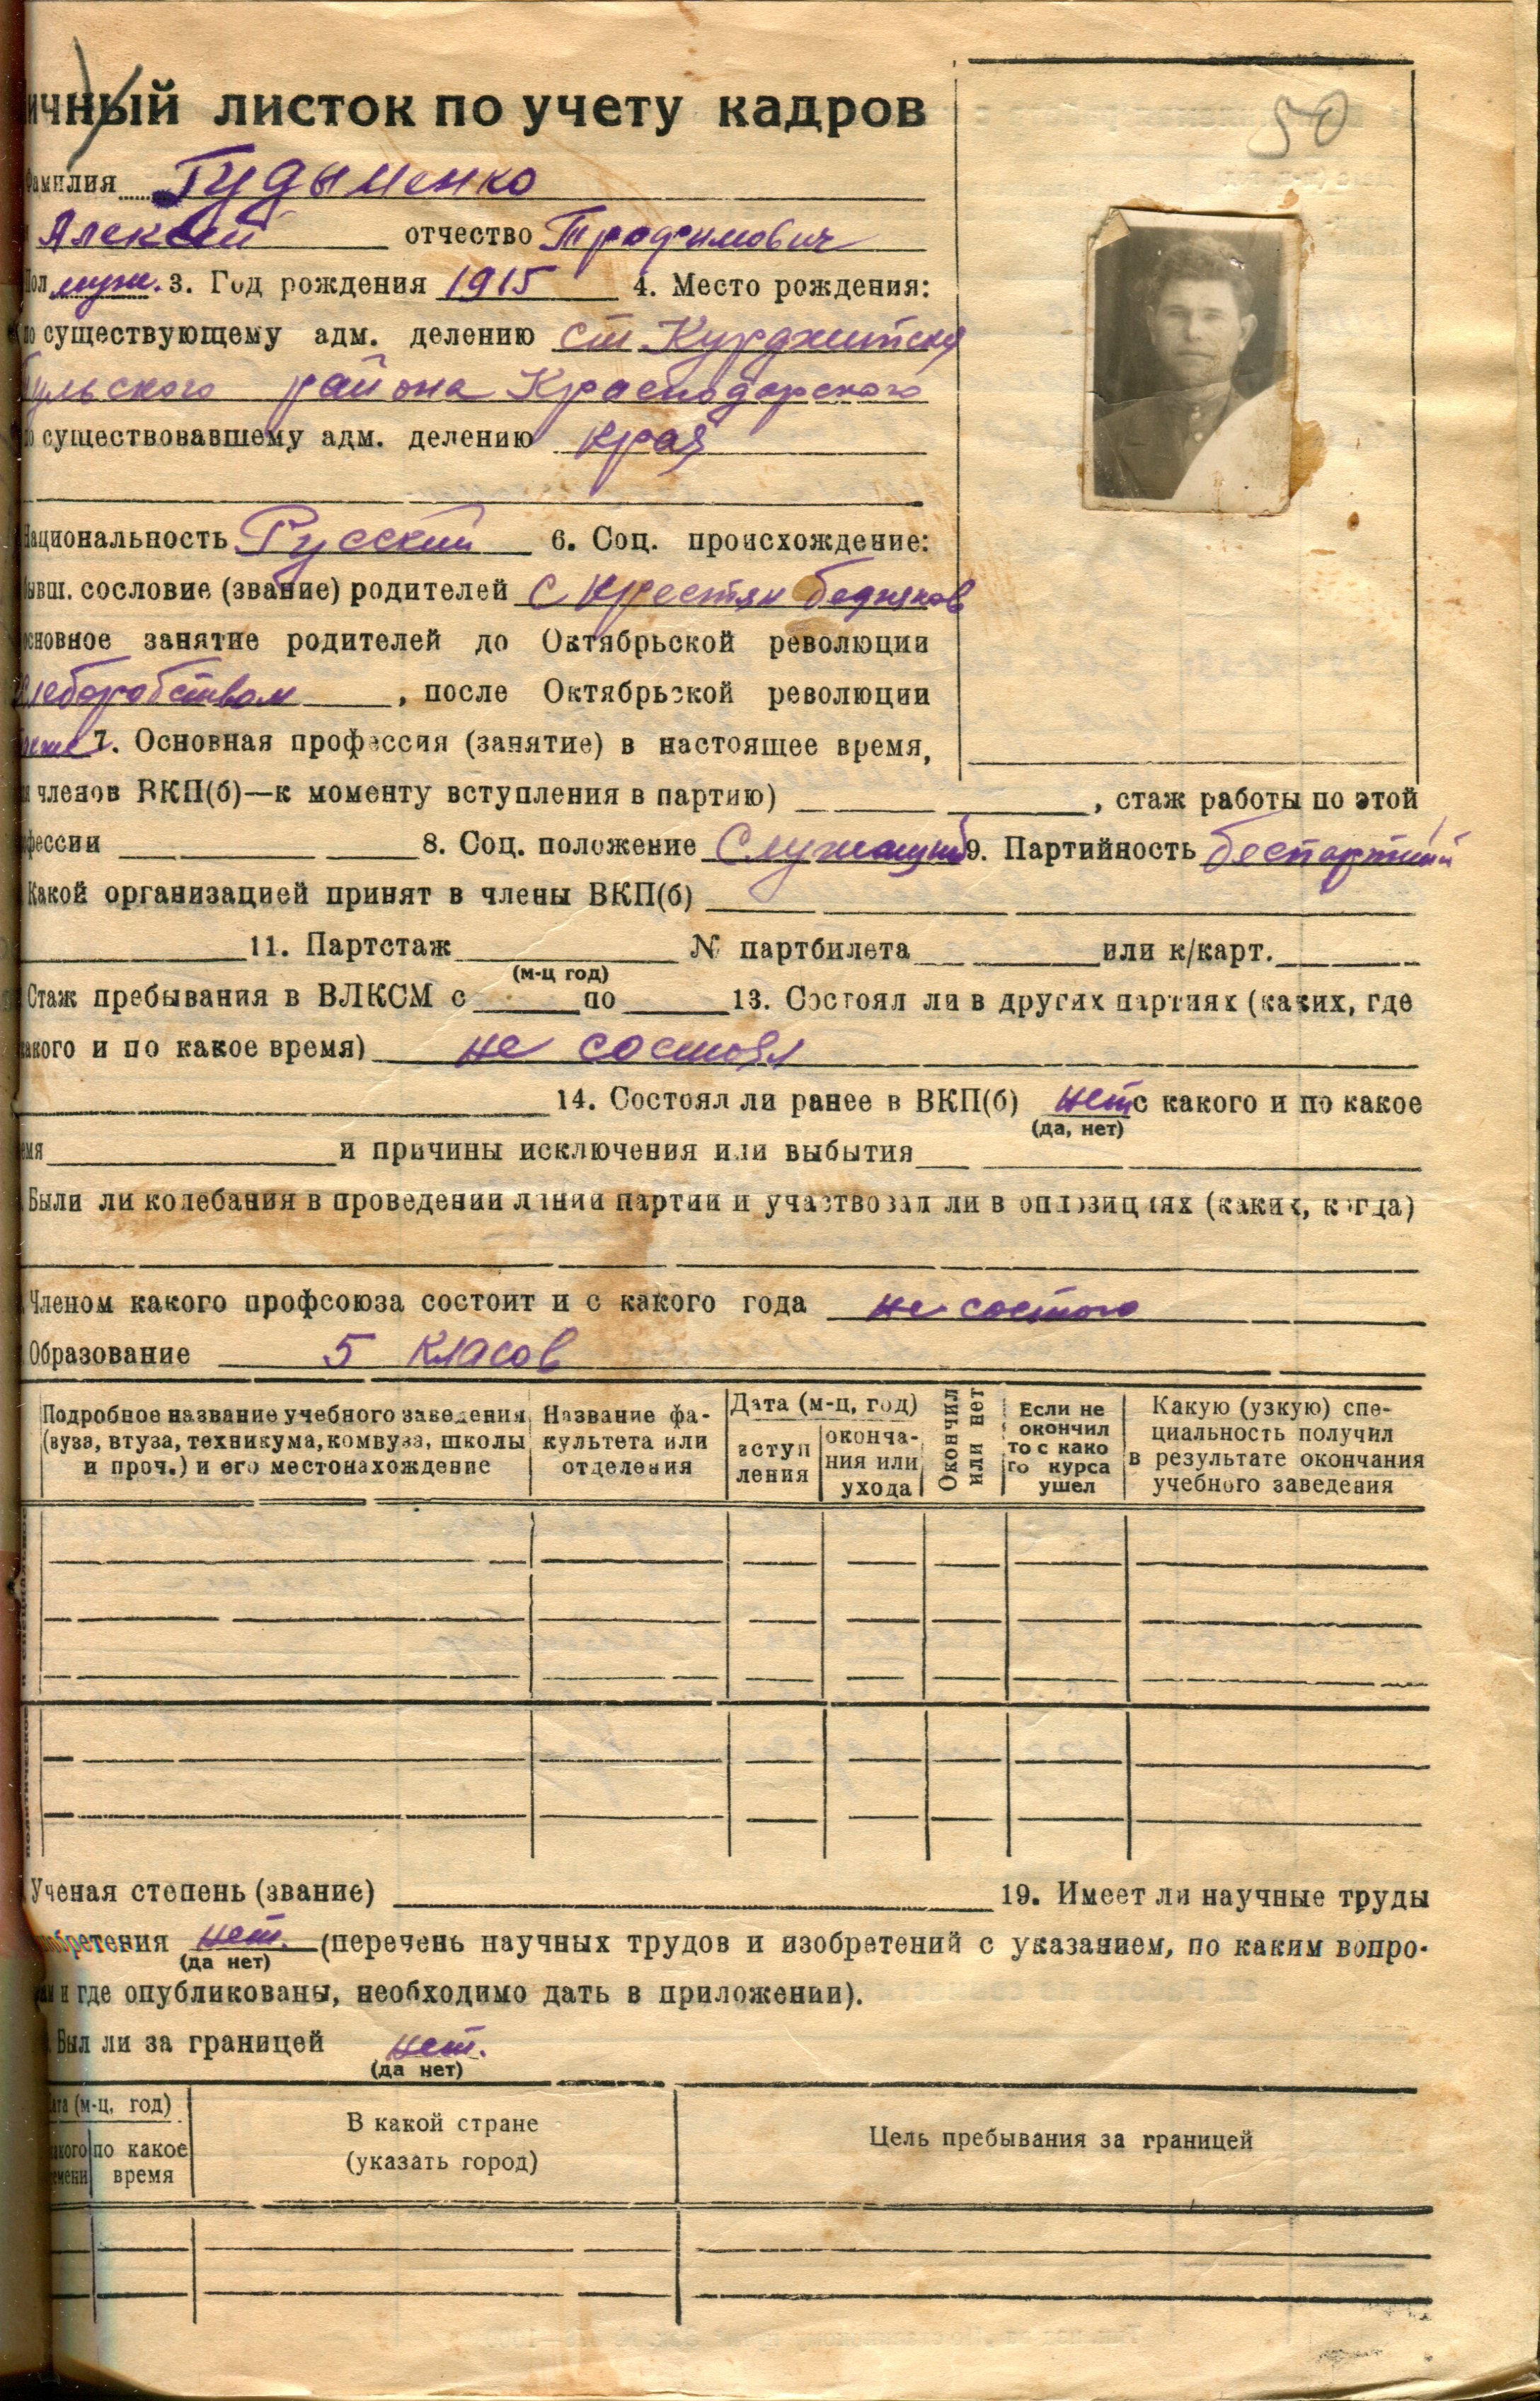 ичный листок по учету кадров
50
Фамилия Гудыменко
Алексей отчество Трофимович
Пол муж. 3. Год рождения 1915 4. Место рождения:
по существующему адм. делению ст Курджипская
Тульского района Краснодарского
по существовавшему адм. делению края
Национальность Русский 6. Соц. происхождение:
бывш. сословие (звание) родителей с крестян бедняков
основное занятие родителей до Октябрьской революции
хлеборобством, после Октябрьской революции
7. Основная профессия (занятие) в настоящее время,
членов ВКП(б)—к моменту вступления в партию) , стаж работы по этой
фессии 8. Соц. положение Служащий 9. Партийность беспартийн
Какой организацией принят в члены ВКП(б)
11. Партстаж № партбилета или к/карт.
(м-ц год)
Стаж пребывания в ВЛКСМ с по 13. Состоял ли в других партиях (каких, где
какого и по какое время) не состоял
14. Состоял ли ранее в ВКП(б) нет с какого и по какое
(да, нет)
емя и причины исключения или выбытия
Были ли колебания в проведении линии партии и участвовал ли в оппозициях (каких, когда)
Членом какого профсоюза состоит и с какого года не состою
Образование 5 класов
Подробное название учебного заведения (вуза, втуза, техникума, комвуза, школы и проч.) и его местонахождение
Название факультета или отделения
Дата (м-ц, год)
вступления
окончания или ухода
Окончил или нет
Если не окончил то с како го курса ушел
Какую (узкую) специальность получил в результате окончания учебного заведения
Ученая степень (звание) 19. Имеет ли научные труды
изобретения нет. (перечень научных трудов и изобретений с указанием, по каким вопро-
(да нет)
сам и где опубликованы, необходимо дать в приложении).
Был ли за границей нет.
(да нет)
Дата (м-ц, год)
какого времени
по какое время
В какой стране
(указать город)
Цель пребывания за границей